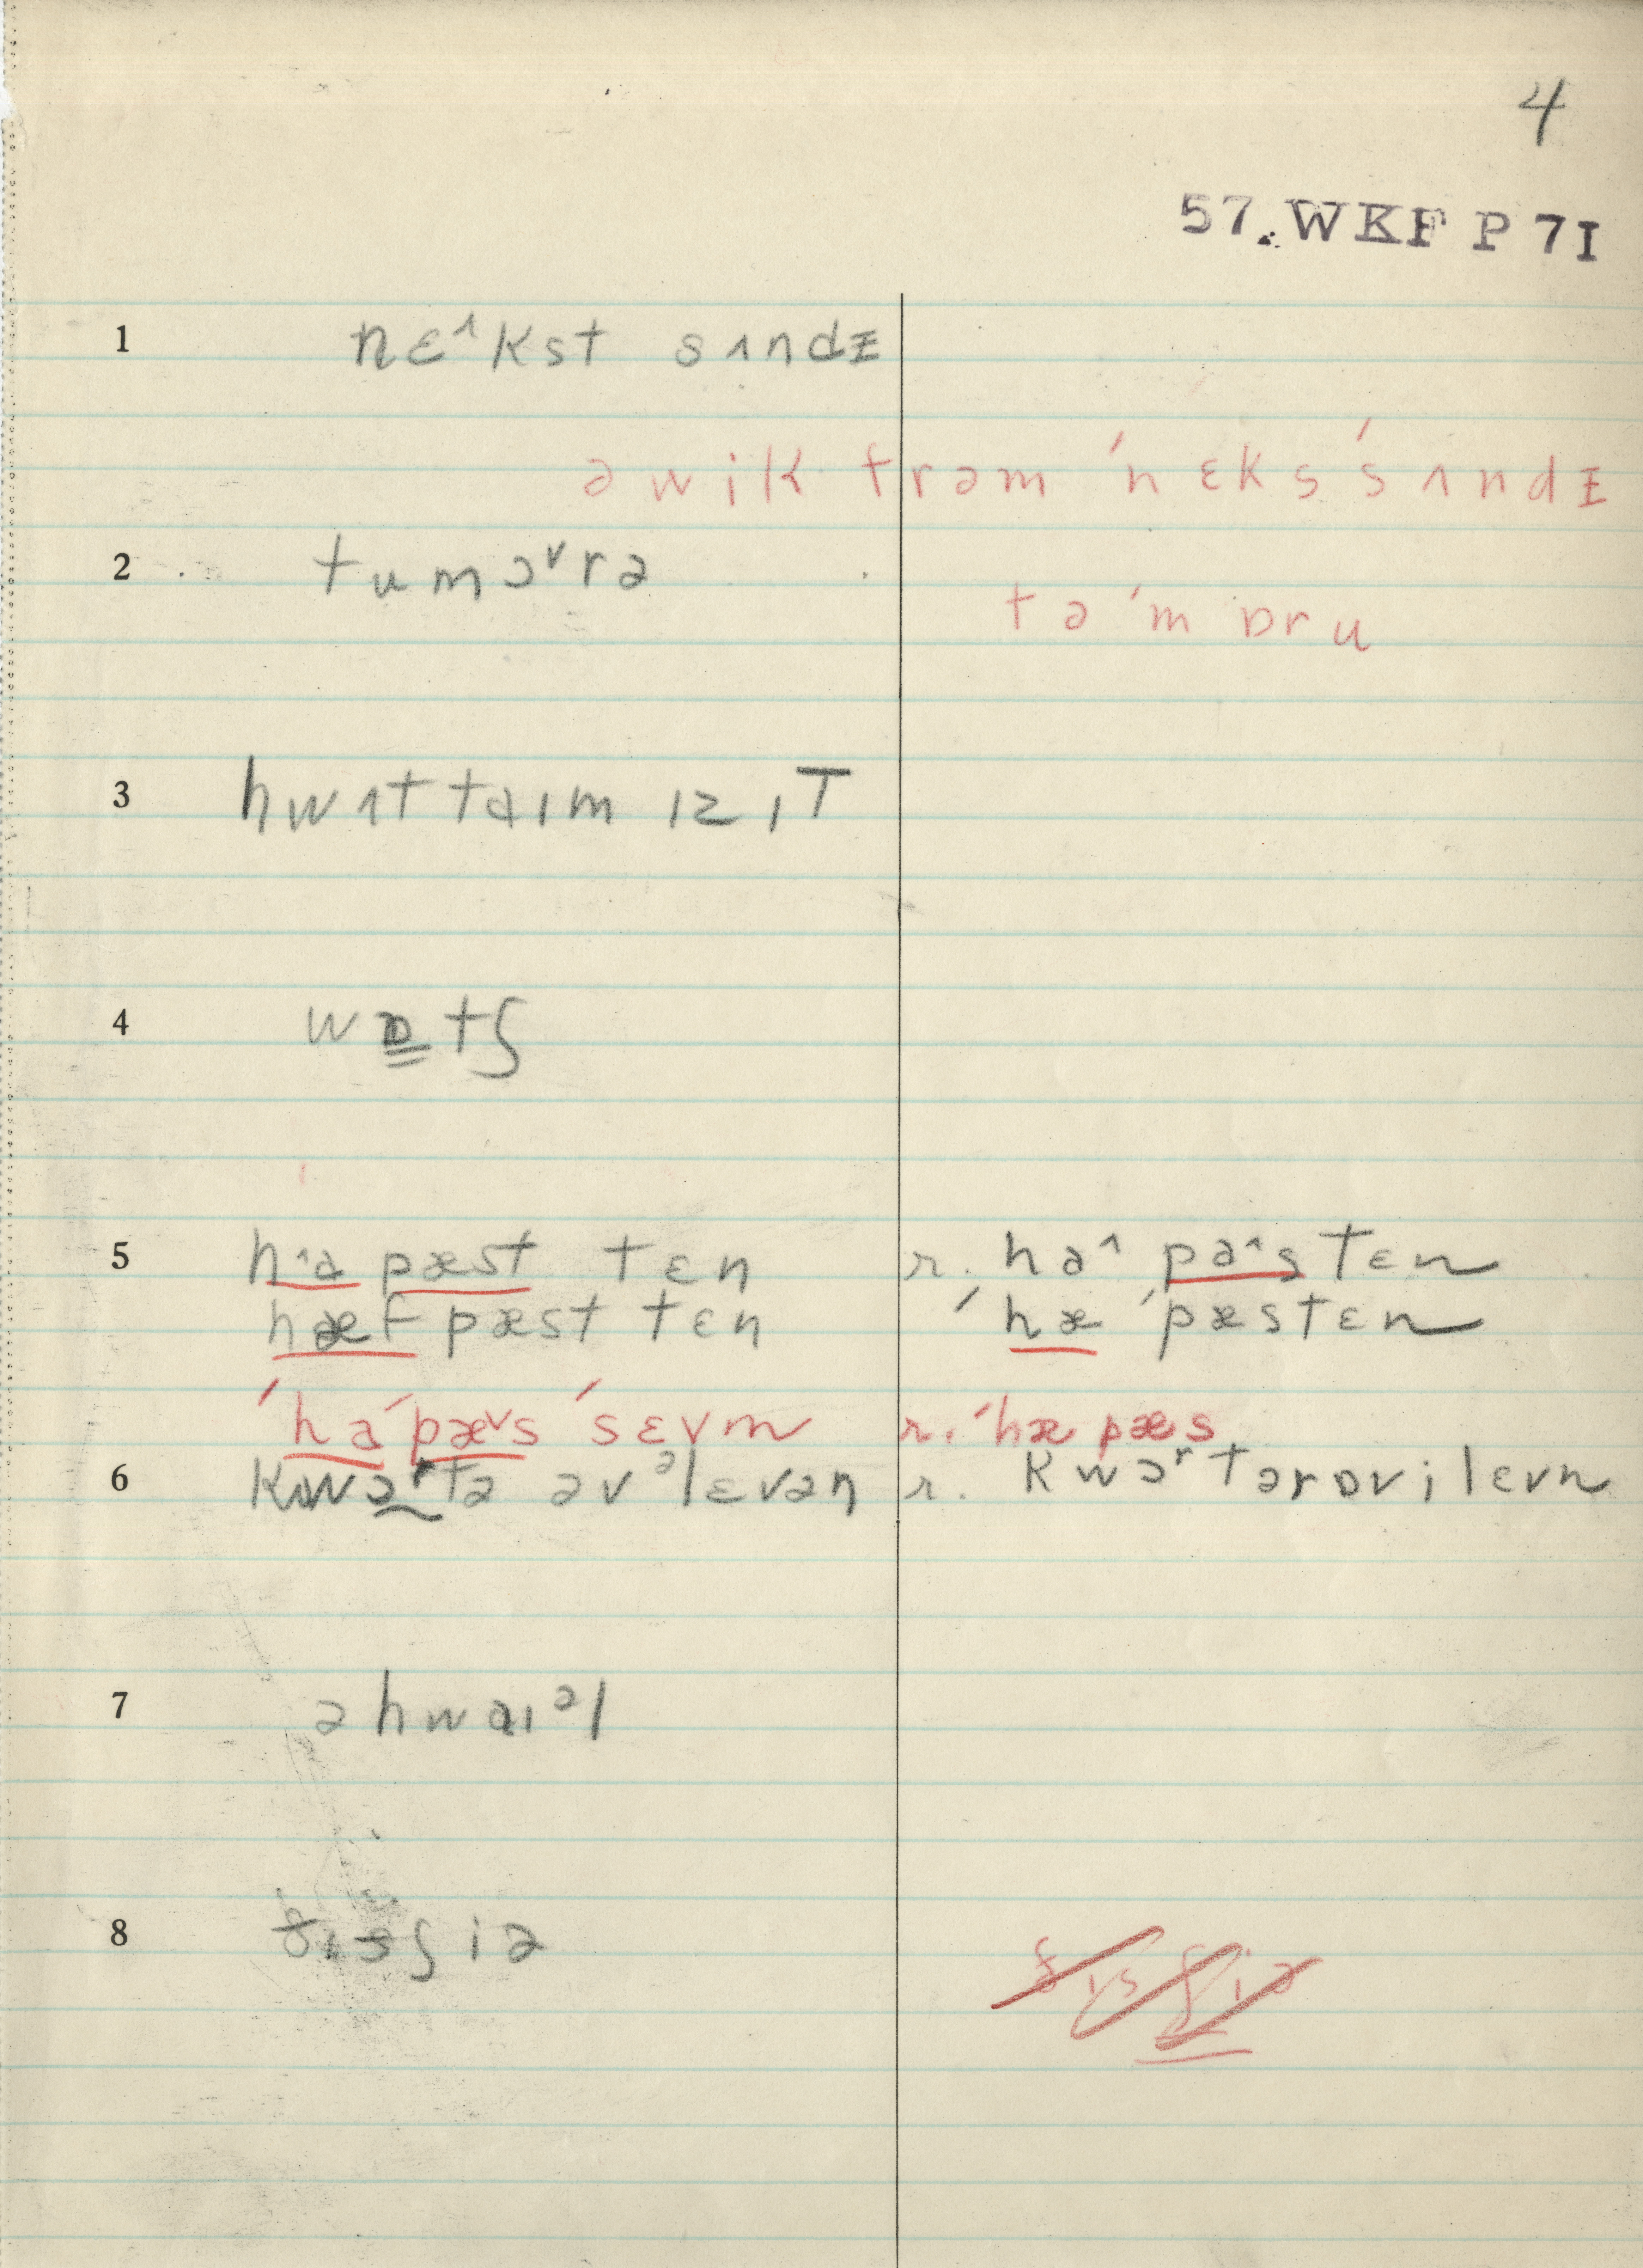 4
57. WKF P 7I
1 nɛ˄kst sʌndɪ
ə wik frəm ˈnɛks ˈsʌndɪ
2 tumɔ˅rə
tə ˈmɒru
3 hwʌt taɪm ɪz ɪT
4 wɒtʃ
5 h˄a pæst tɛn r. ha˄ pa˄stɛn
hæf pæst tɛn ˈhæ ˈpæstɛn
ˈhaˈpæ˅s ˈsɛvm r. ˈhæ pæs
6 kwɔʳtə əvᵊlɛvən r. kwɔʳtərɒvilɛvn
7 əhwaɪᵊl
8 ðɪsʃiə